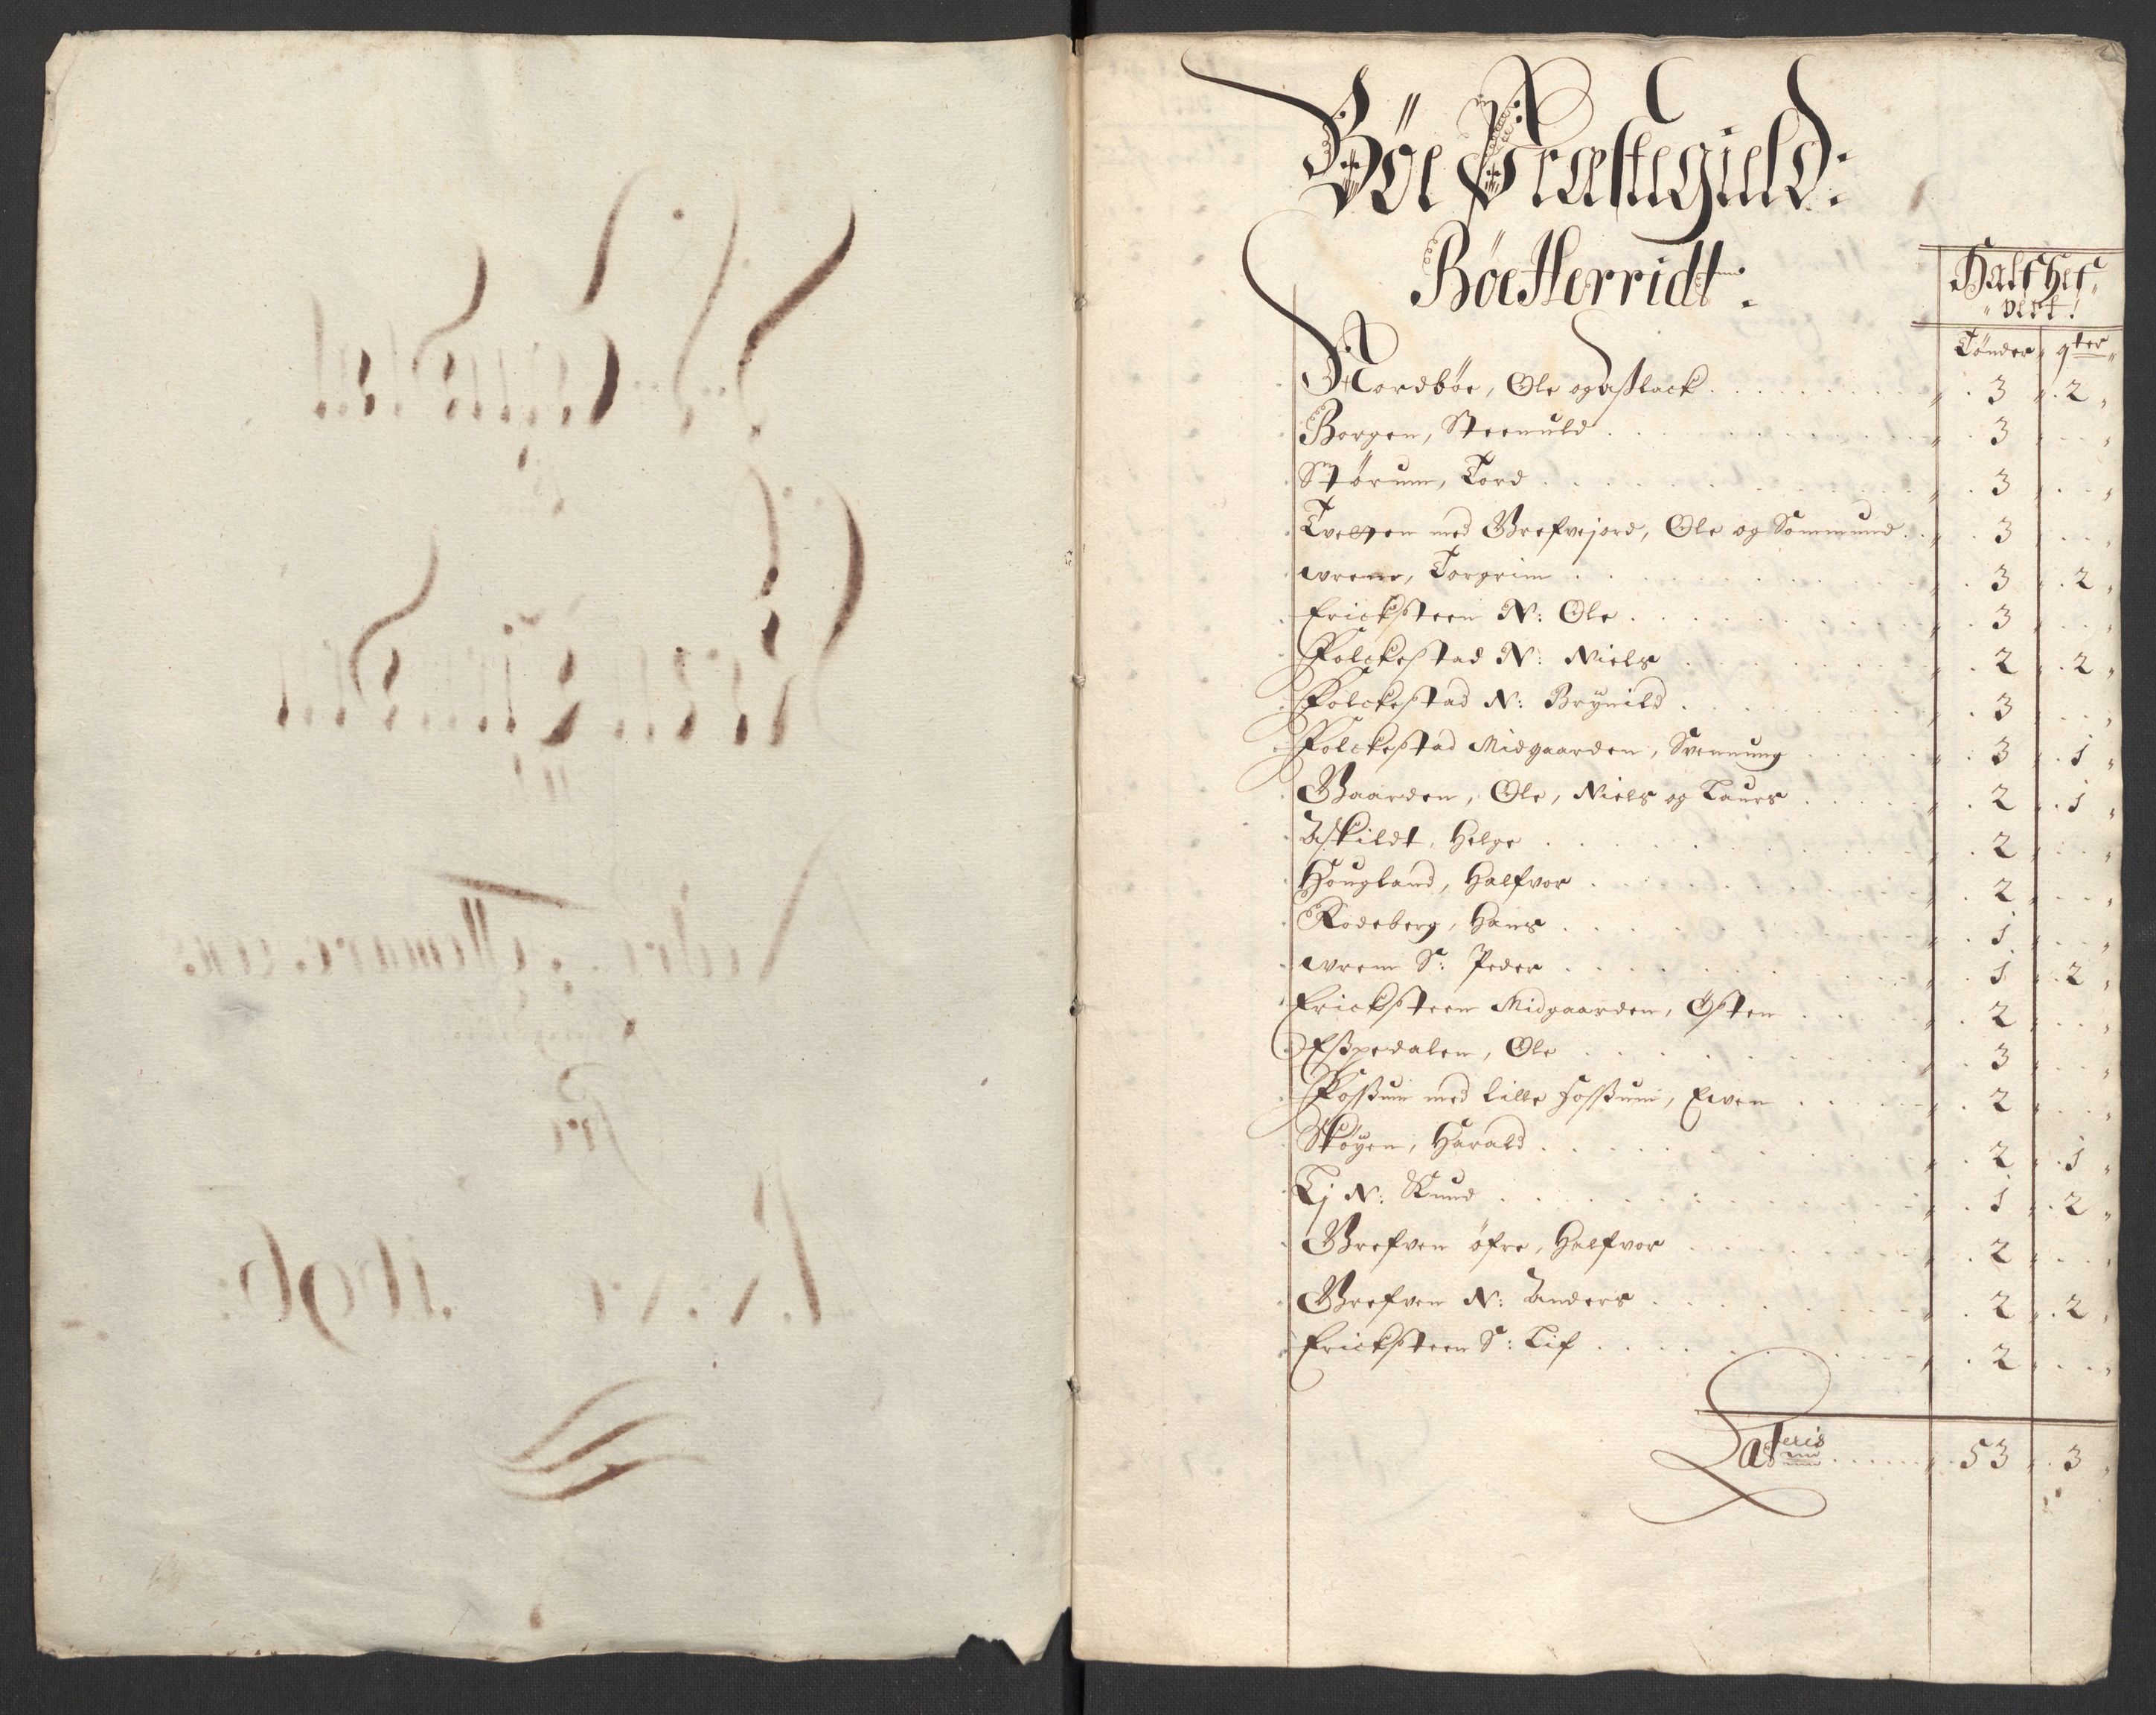 Böe Præstegield:
Böe Herridt:
Halfher
vert!
Tönder qter
Nordböe, Ole og Aslack . . . 3 . 2
Borgen, Steenuld . . . 3 . . .
Störum, Tord . . . 3 . . .
med Grefvejord, Ole og . . . 3 . . .
wrene, Torgrim . . . 3 . 2
Ericksteen N: Ole . . . 3 . . .
Folckestad N: Niels . . . 2 . 2
Folckestad N: Brynild . . . 3 . . .
Folckestad Midgaarden, Svennung . . . 3 . 1
Gaarden, Ole, Niels og Laurs . . . 2 . 1
Askildt, Helge . . . 2 . . .
Hougland, Halfvor . . . 2 . . .
Rodeberg, Hans . . . 1 . . .
wrem S: Peder . . . 1 . 2
Ericksteen Midgaarden, Östen . . . 2 . . .
Eßpedalen, Ole . . . 3 . . .
Foßum med lille Foßum, Even . . . 2 . . .
Sköyen, Harald . . . 2 . 1
Lj N: Knud . . . 1 . 2
Grefven öfre, Halfvor . . . 2 . . .
Grefven N: Anders . . . 2 . 2
Ericksteen S: Lif . . . 2 . . .
Lateris . . . 53 . 3